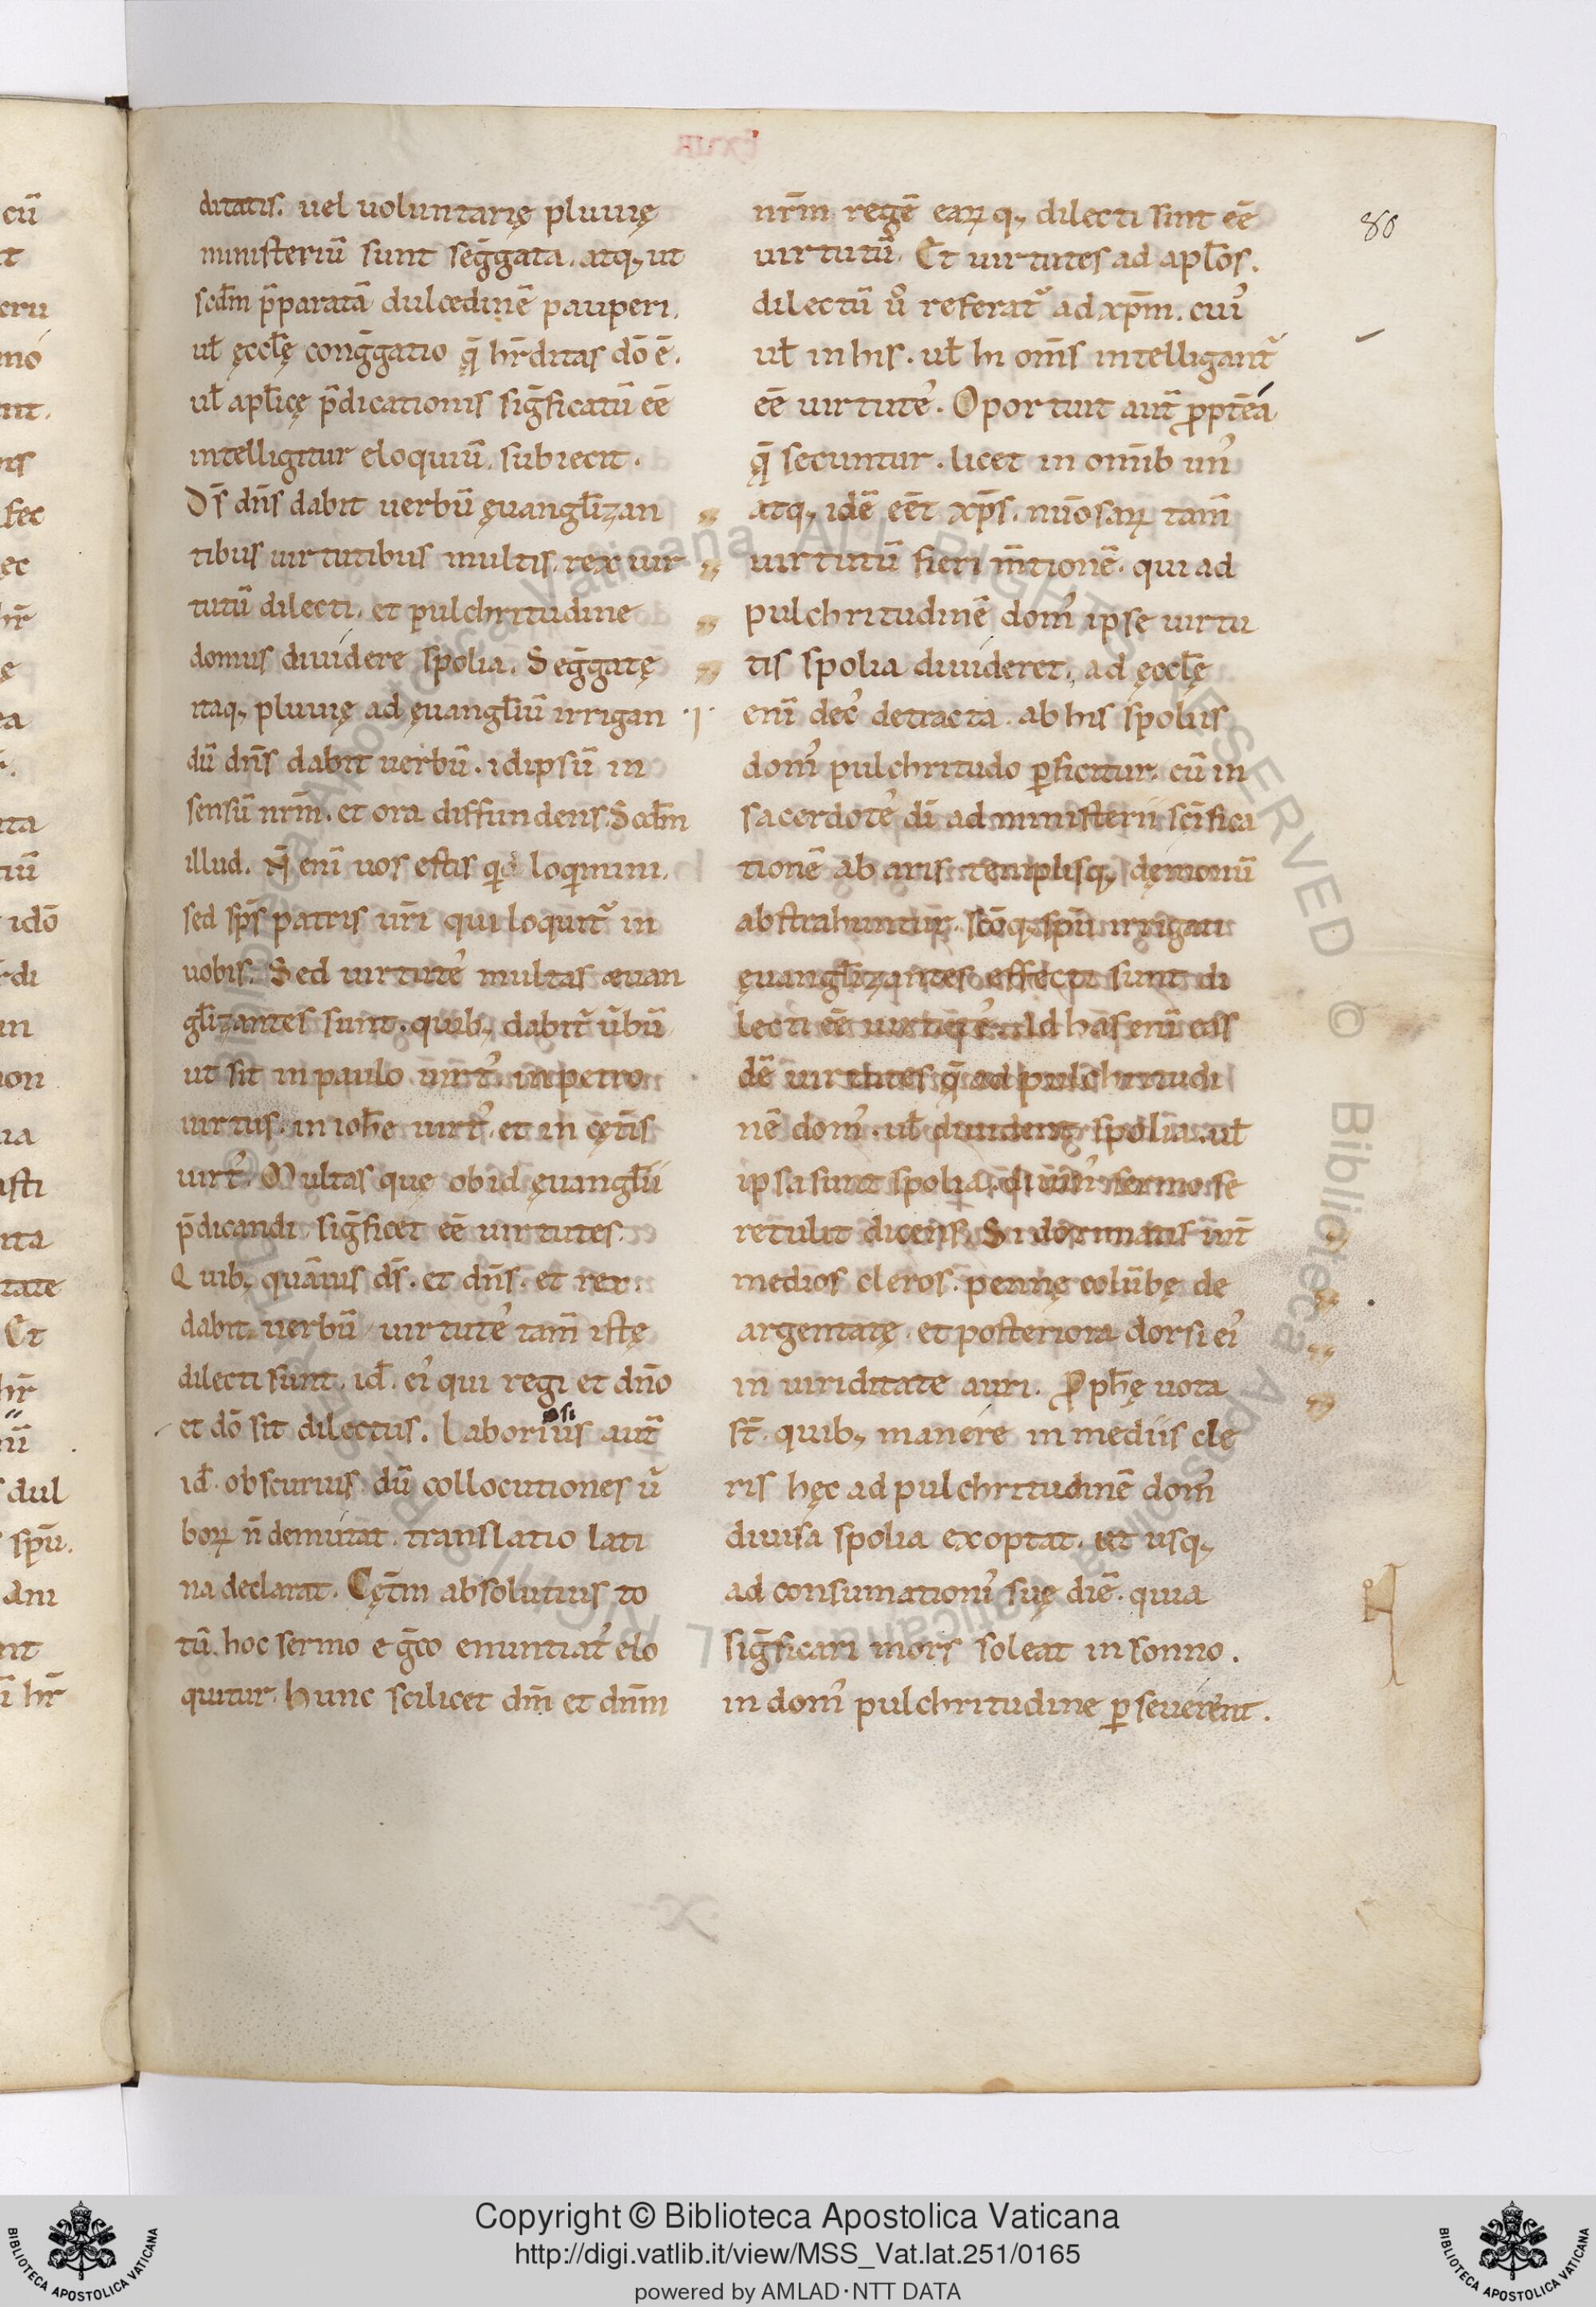 ditatis. uel uoluntarię pluuię
ministeriū sunt seḡgata. atq; ut
scd̄m p̄paratā dulcedinē pauperi.
ul̄ ęccl̄ę conḡgatio q̨̄ hr̄ditas dō ē.
ul̄ apl̄icę p̄dicationis siḡficatū eē
intelligitur eloquiū. subiecit.
Ds̄ dn̄s dabit uerbū ęuangl̄izan
tibus uirtutibus multis. rex uir
tutū dilecti. et pulchritudine
domus diuidere spolia. Seḡgatę
itaq; pluuię ad ęuangl̄iū irrigan
dū dn̄s dabit uerbū. idipsū in
sensū nr̄m. et ora diffundens. Scd̄m
illud. N̄ enī uos estis qd̄ loqmini.
sed sp̄s patris ur̄i qui loquit᷑ in
uobis. Sed uirtute᾽ multas æuan
gl̄izantes sunt. quib; dabit᷑ ūbū
ut sit in paulo uirt᾽. in petro
uirtus. in ioh̄e uirt᾽. et in cęt̄is
uirt᾽. Multas que ob id ęuangl̄ii
p̄dicandi siḡficet eē uirtutes.
Quib; quāuis ds̄. et dn̄s. et rex.
dabit uerbū uirtute᾽ tam̄ istę
dilecti sunt. id̄. ei᾽ qui regi et dn̄o
et dō sit dilectus. Laborius aut̄
osi
id̄ obscurius dū collocutiones ū
boꝝ n̄ demutat. translatio lati
na declarat. Cęt̄m absolutius to
tū. hoc sermo e ḡco enuntiat᾽ elo
quitur. hunc scilicet dm̄ et dn̄m
nr̄m regē eaꝝ q; dilecti sint eē
uirtutū. Et uirtutes ad apl̄os.
dilectū ů referat᷑ ad xp̄m. cui᾽
ul̄ in his. ul̄ hi om̄s intelligant᷑
eē uirtute᾽. Oportuit aut̄ ꝓptea
q̨̄ secuntur. licet in omīb un᾽
atq; idē eēt xp̄s. nūosaꝝ tam̄
uirtutū fieri m̄tionē. qui ad
pulchritudinē dom᾽ ipse uirtu
tis spolia diuideret. ad ęccl̄ę
enī dec᾽ detracta. ab his spoliis
dom᾽ pulchritudo ꝑficitur. cū in
sacerdote᾽ dī ad ministerii sc̄ifica
tionē ab aris templisq; dęmonū
abstrahuntur. sc̄oq; spū irrigati
ęuangl̄izantes effecti sunt di
lecti eē uirtute᾽. Ad has enī eas
dē uirtutes q̨̄ ad pulchritudi
nē dom᾽. ul̄ diuident spolia. ul̄
ipsa sunt spolia. diuin᾽ sermo se
retulit dicens. Si dormiatis int̄
medios cleros. pennę colūbę de
argentatę. et posteriora dorsi ei᾽
in uiriditate auri. Ꝓph̄ę uota
st̄. quib; manere in mediis cle
ris hęc ad pulchritudinē dom᾽
diuisa spolia exoptat. ut usq;
ad consumationi᾽ suę diē. quia
siḡficari mors soleat in sonno.
in dom᾽ pulchritudine ꝑseuerent.
80
Copyright © Biblioteca Apostolica Vaticana
http://digi.vatlib.it/view/MSS_Vat.lat.251/0165
powered by AMLAD·NTT DATA
BIBLIOTECA APOSTOLICA VATICANA
BIBLIOTECA APOSTOLICA VATICANA